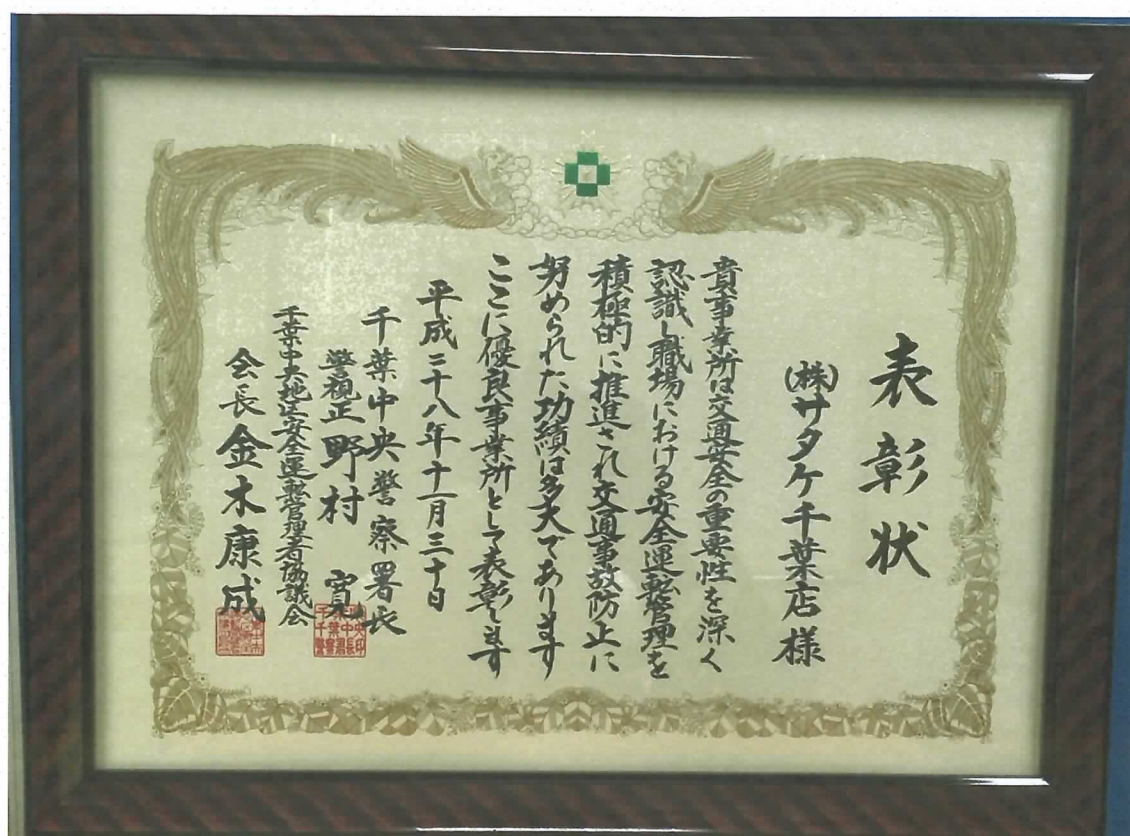 表彰状
(株)サタケ千葉店様
貴事業所は交通安全の重要性を深く
認識し職場における安全運転管理を
積極的に推進され交通事故防止に
努められた功績は多大であります
ここに優良事業所として表彰します
平成二十八年十一月三十日
千葉中央警察署長
警視正 野村
千葉中央地区安全運転管理者協議会
会長 金木康成